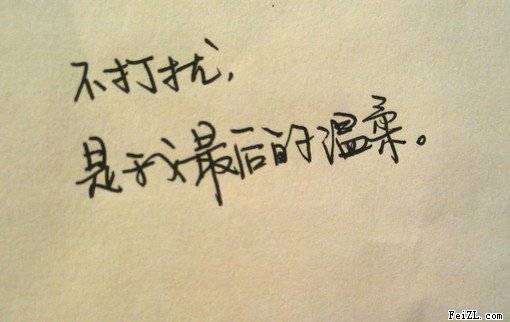 不打扰,
是我最后的温柔。
FeiZL.com